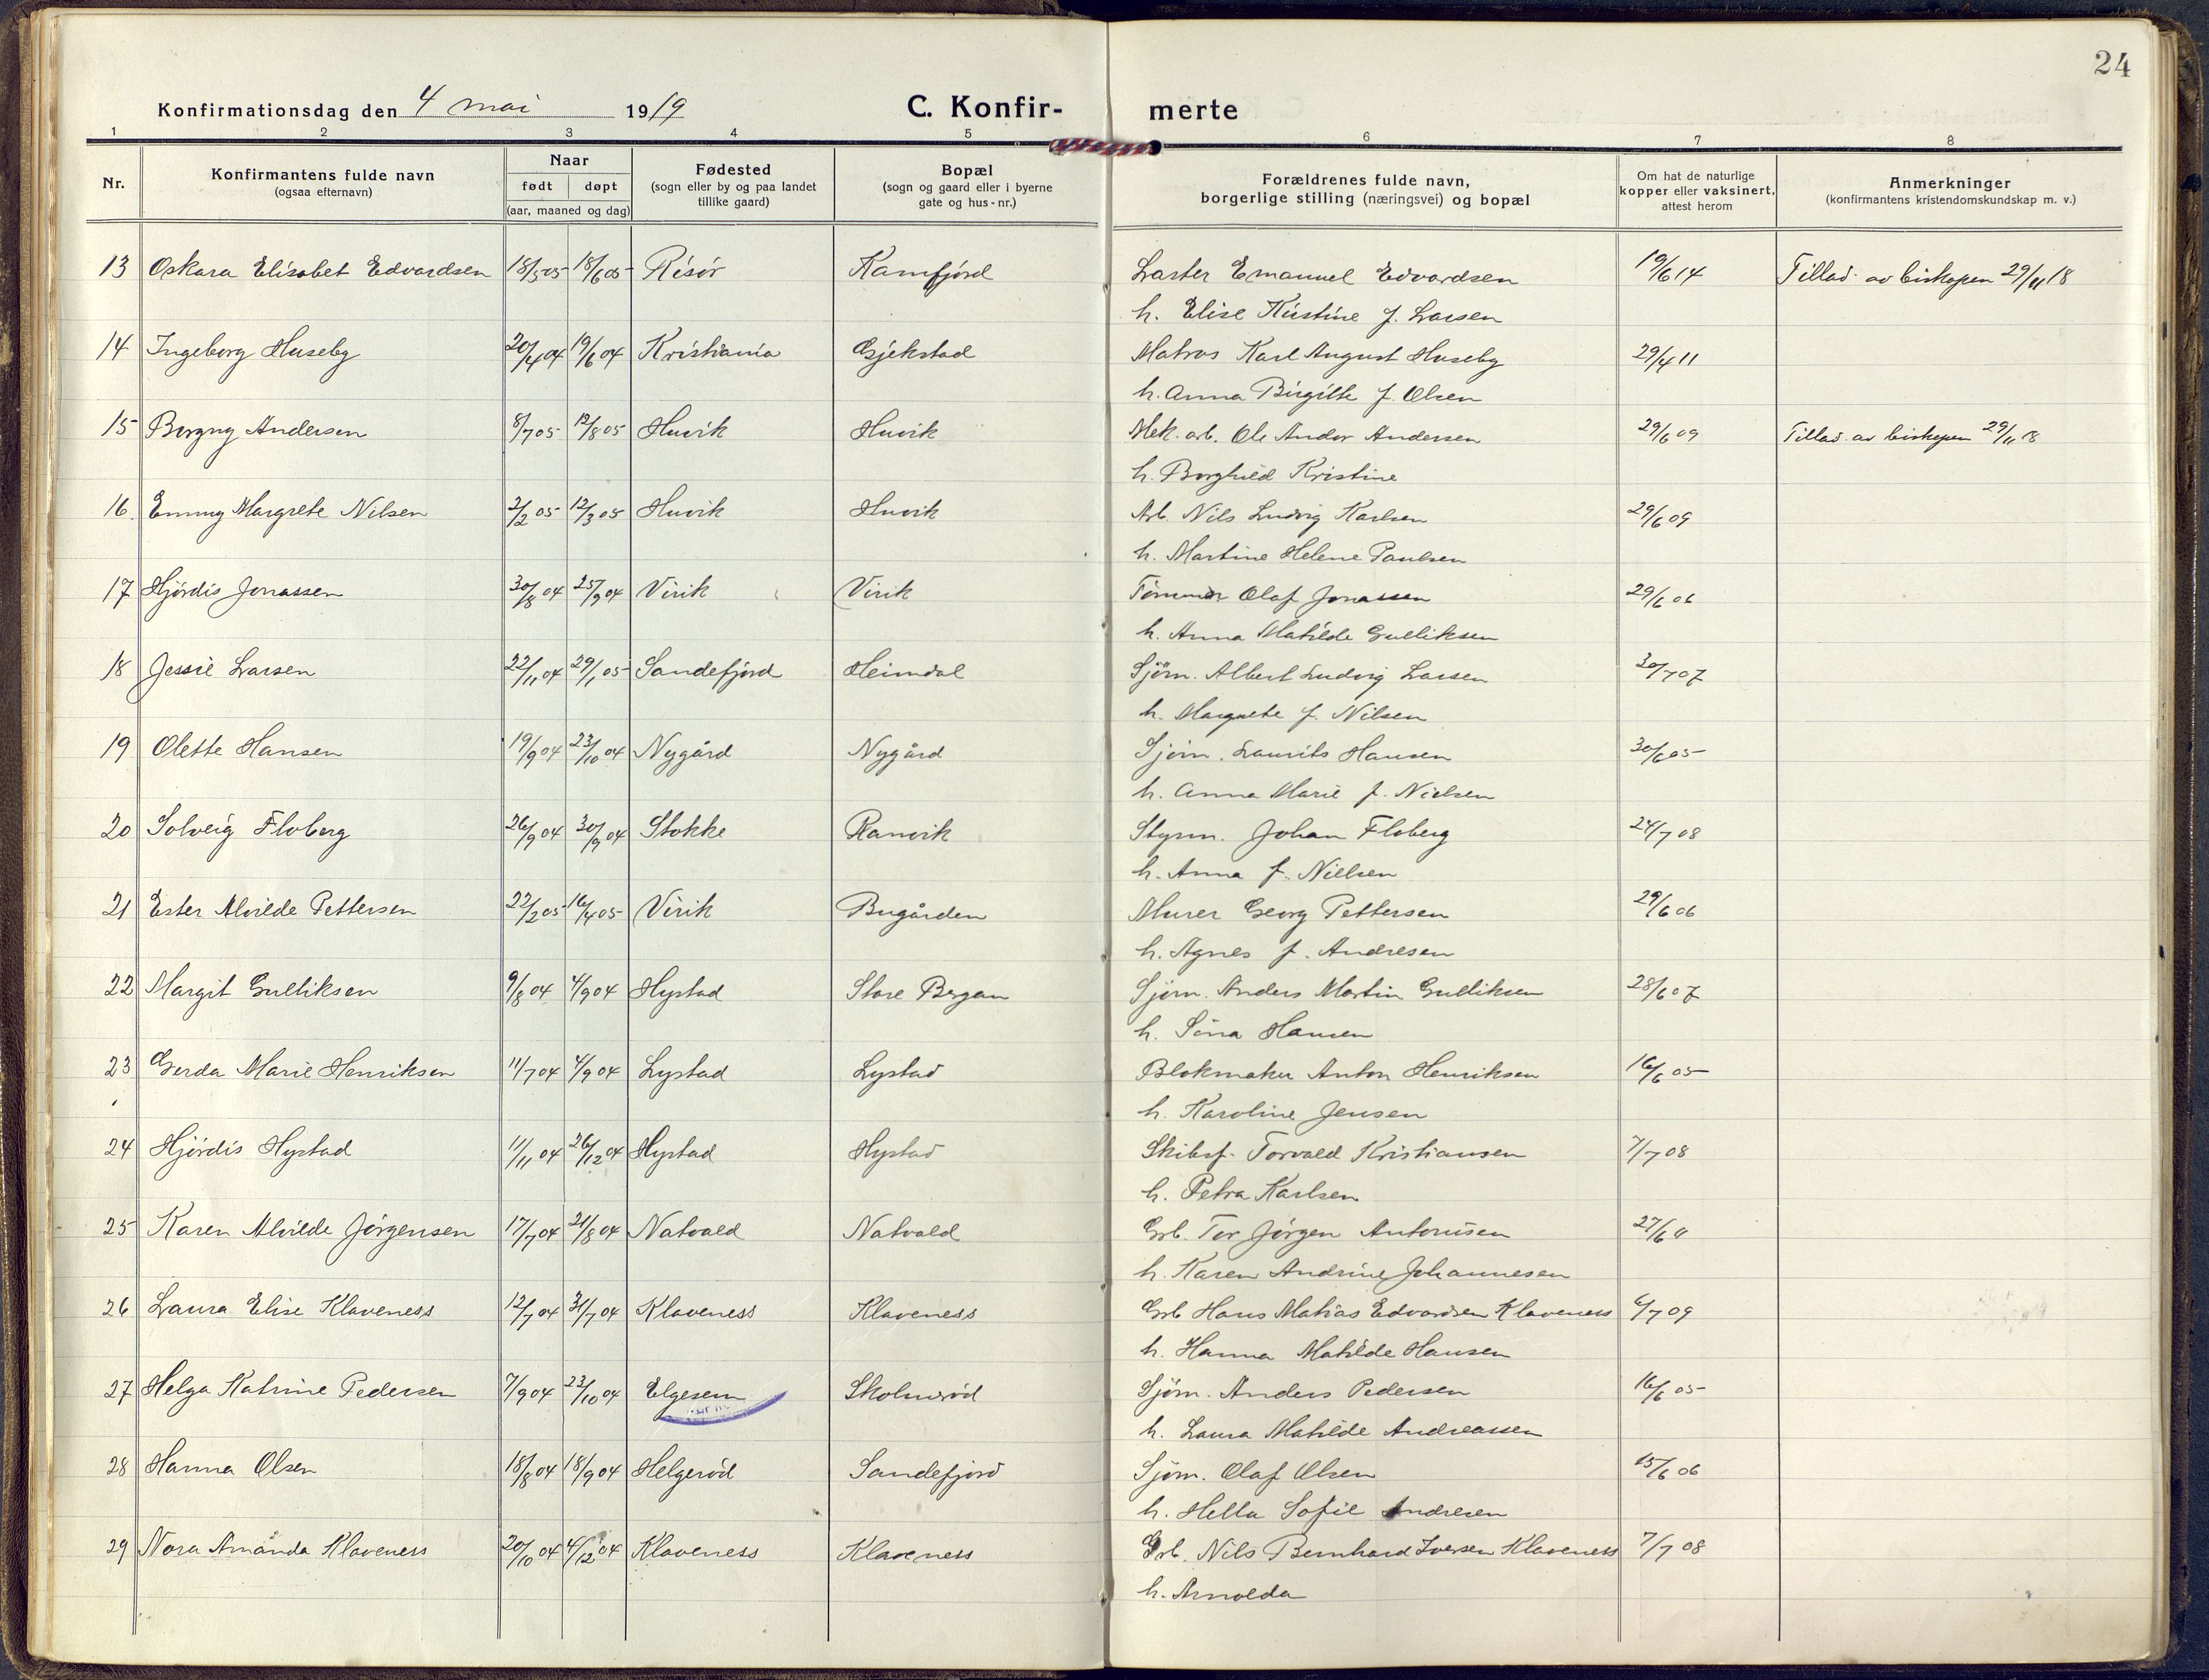 24
Konfirmationsdag den 4 mai 1919
C. Konfirmerte
1 2 3 4 5 6 7 8
Nr.
Konfirmantens fulde navn
(ogsaa efternavn)
Naar
født døpt
(aar, maaned og dag)
Fødested
(sogn eller by og paa landet
tillike gaard)
Bopæl
(sogn og gaard eller i byerne
gate og hus-nr.)
Forældrenes fulde navn,
borgerlige stilling (næringsvei) og bopæl
Om hat de naturlige
kopper eller vaksinert,
attest herom
Anmerkninger
(konfirmantens kristendomskundskap m. v.)
13 Oskara Elisabet Edvardsen 18/5 05 18/6 05 Risör Kamfjörd Emanuel Edvardsen 19/6 14 Tillad. av biskopen 29/11 18
h. Elise Kristine f. Larsen
14 Ingeborg Huseby 20/4 04 19/6 04 Kristiania Gjekstad Matros Karl August Huseby 29/4 11
h. Anna Birgitte f. Olsen
15 Bergny Andersen 8/7 05 12/8 05 Huvik Huvik Mek. arb. Ole Andor Andersen 29/6 09 Tillad. av biskopen 29/11 18
h. Borghild Kristine
16 Emmy Margrete Nilsen 2/2 05 12/3 05 Huvik Huvik Arb. Nils Ludvig Karlsen 29/6 09
h. Martine Helene Paulsen
17 Hjördis Jonassen 30/8 04 25/9 04 Virik Virik Tömmer Olaf Jonassen 29/6 06
h. Anna Matilde Gulliksen
18 Jessie Larsen 22/11 04 29/1 05 Sandefjord Heimdal Sjöm. Albert Ludvig Larsen 30/7 07
h. Margrete f. Nilsen
19 Olette Hansen 19/9 04 23/10 04 Nygård Nygård Sjöm. Laurits Hansen 30/6 05
h. Anna Marie f. Nielsen
20 Solveig Floberg 26/9 04 30/9 04 Stokke Ranvik Styrm. Johan Floberg 24/7 08
h. Anna f. Nielsen
21 Ester Alvilde Pettersen 22/2 05 16/4 05 Virik Bugården Murer Georg Pettersen 29/6 06
h. Agnes f. Andresen
22 Margit Gulliksen 9/8 04 4/9 04 Hystad Store Bergan Sjöm. Anders Martin Gulliksen 28/6 07
h. Sina Hansen
23 Gerda Marie Henriksen 11/7 04 4/9 04 Lystad Lystad Blokmaker Anton Henriksen 16/6 05
h. Karoline Jensen
24 Hjördis Hystad 11/11 04 26/12 04 Hystad Hystad Skibsf. Torvald Kristiansen 7/7 08
h. Petra Karlsen
25 Karen Alvilde Jörgensen 17/7 04 21/8 04 Natvald Natvald Grb. Tor Jörgen Antonisen 27/6 11
h. Karen Andrine Johannesen
26 Laura Elise Klaveness 12/7 04 31/7 04 Klaveness Klaveness Grb Hans Matias Edvardsen Klaveness 6/7 09
h. Hanna Matilde Hansen
27 Helga Katrine Pedersen 7/9 04 23/10 04 Elgesem Skolmeröd Sjöm. Anders Pedersen 16/6 05
h. Laura Matilde Andreassen
28 Hanna Olsen 18/8 04 18/9 04 Helgeröd Sandefjord Sjöm. Olaf Olsen 15/6 06
h. Hella Sofie Andresen
29 Nora Amanda Klaveness 20/10 04 4/12 04 Klaveness Klaveness Grb. Nils Bernhard Iversen Klaveness 7/7 08
h. Arnolda